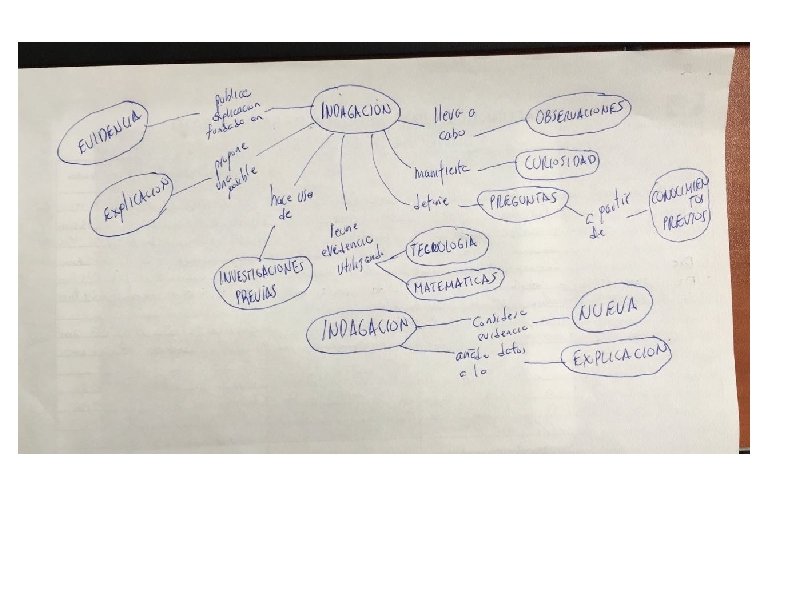 EVIDENCIA
publica
explicacion
fundada en
INDAGACIÓN
lleva a
cabo
OBSERVACIONES
EXPLICACION
propone
una
posible
manifiesta
CURIOSIDAD
hace uso
de
define
PREGUNTAS
a partir
de
CONOCIMIEN
TOS
PREVIOS
INVESTIGACIONES
PREVIAS
reune
evidencia
utilizando
TECNOLOGÍA
MATEMATICAS
INDAGACION
Considera
evidencia
NUEVA
añade datos
a la
EXPLICACION